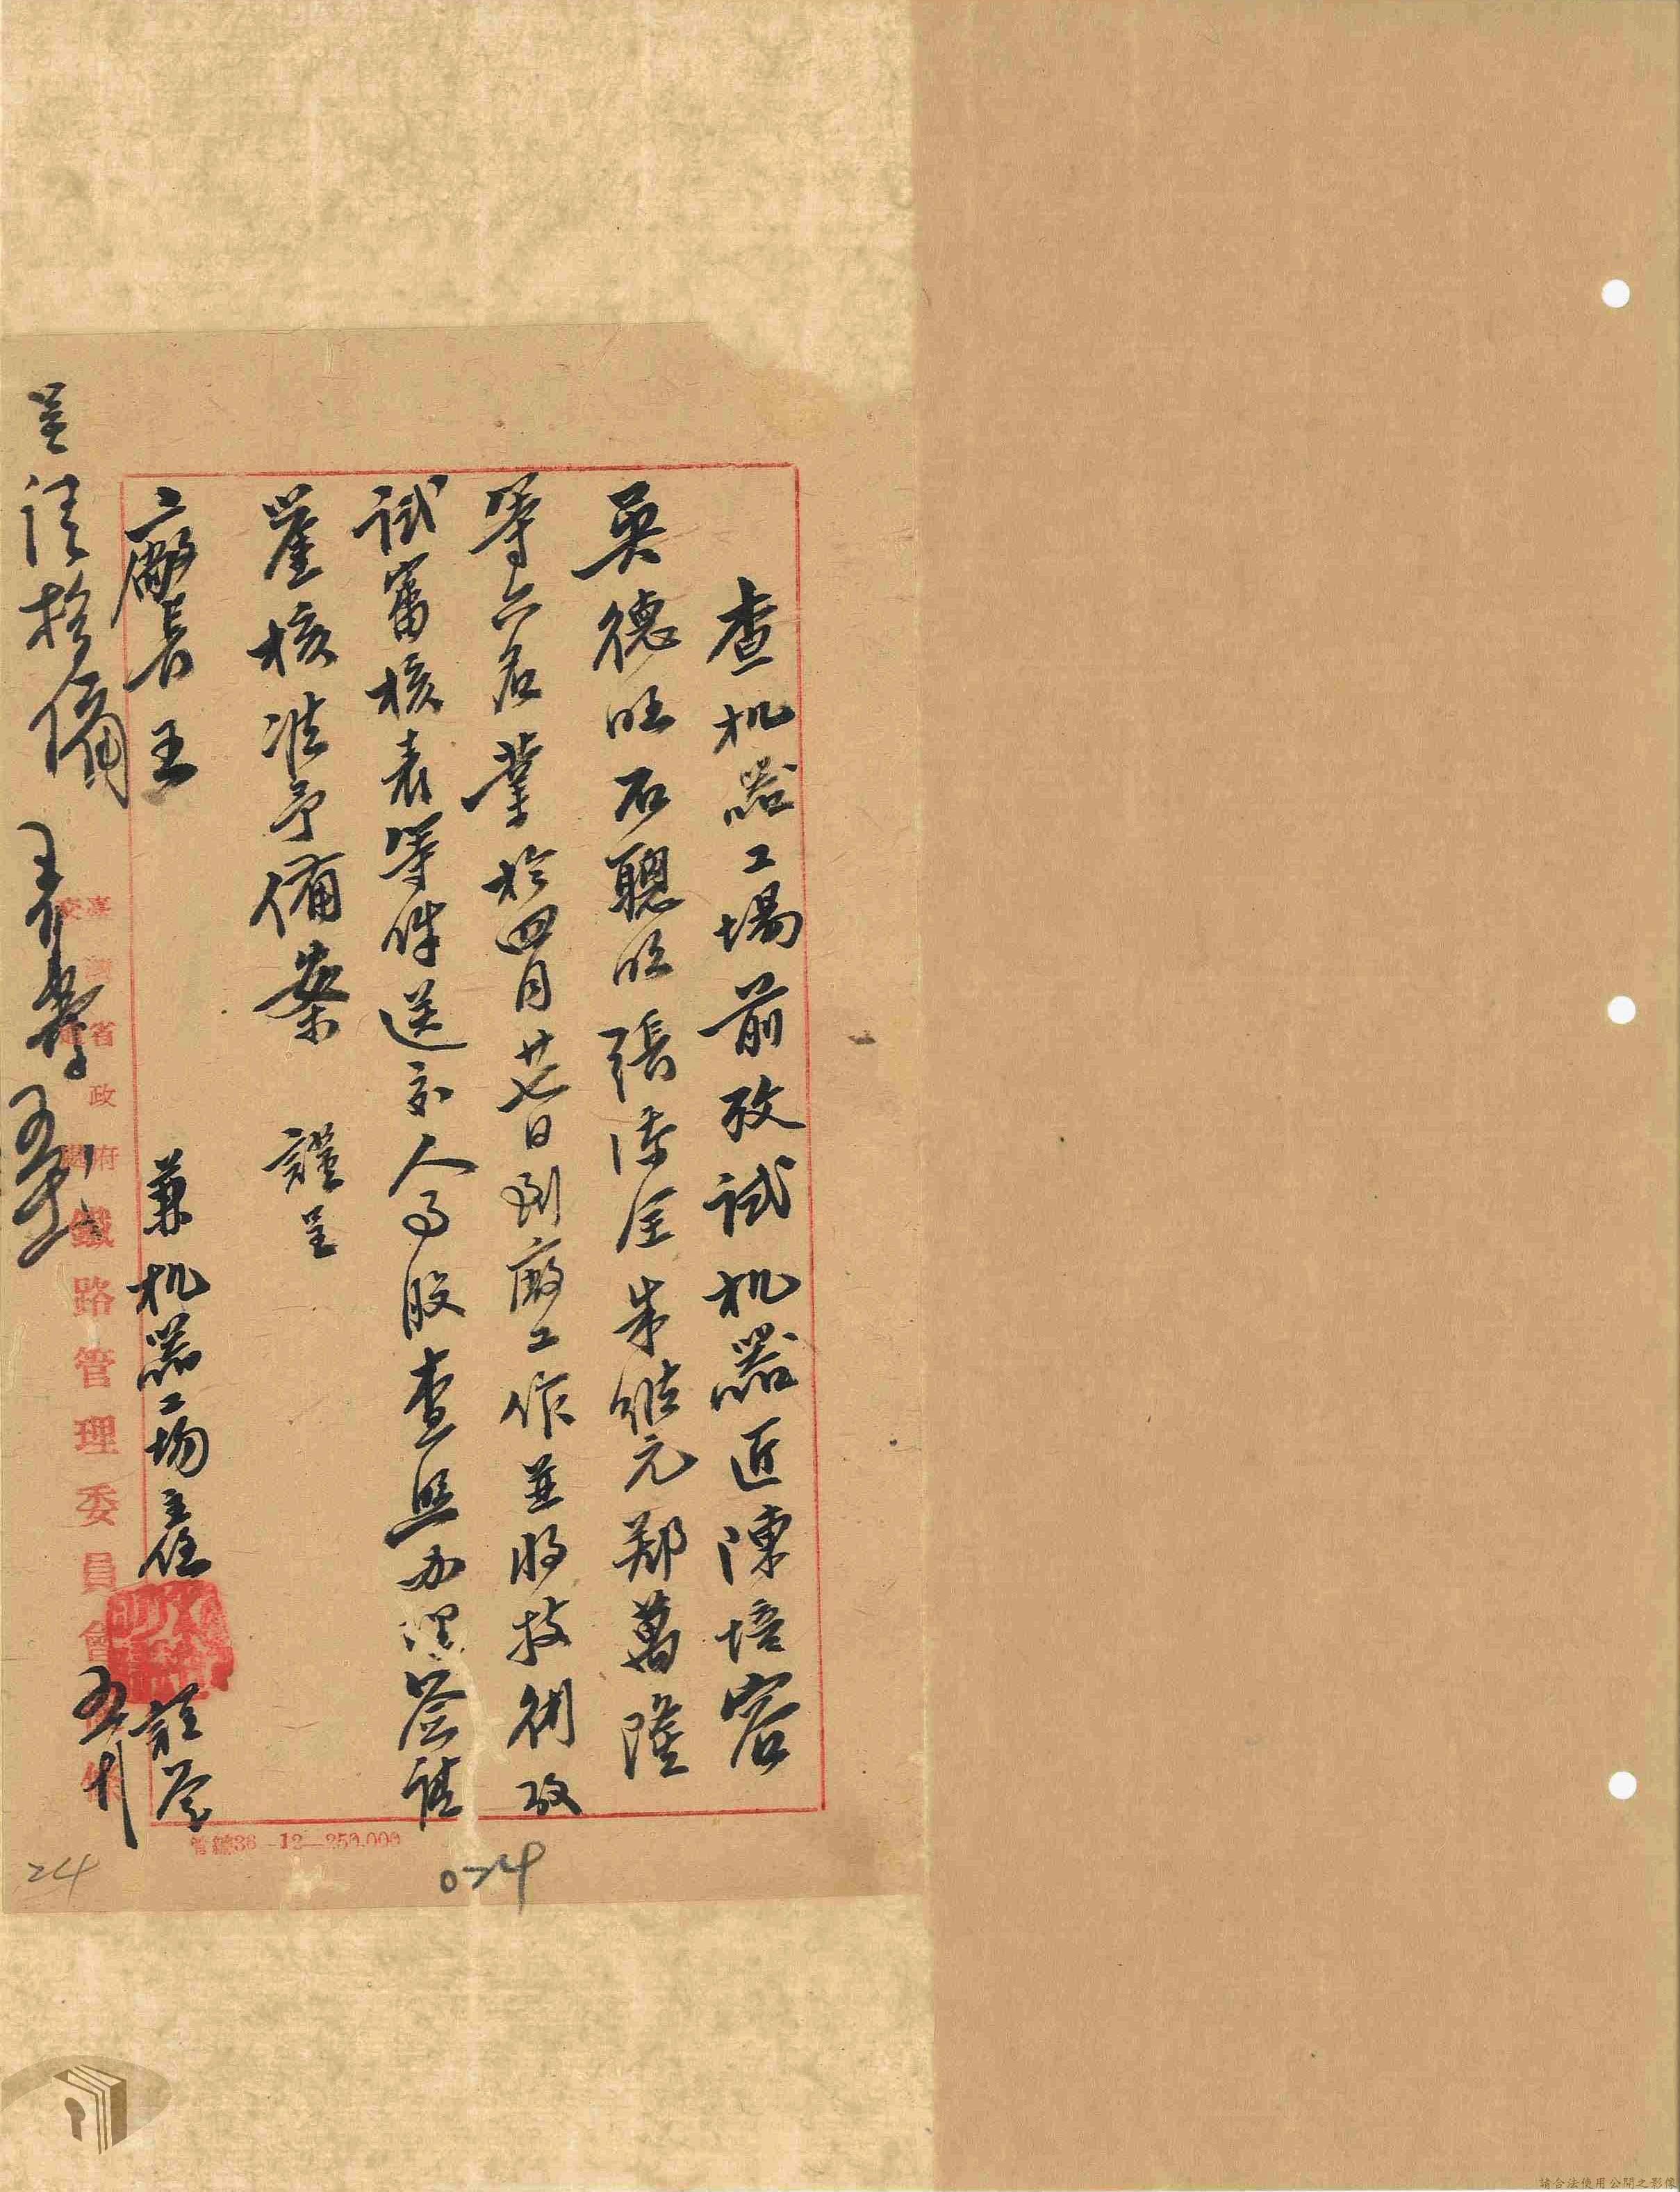 查机器工場前攷試机器匠陳培容
吳德旺石聰旺張沛全朱繼元郑萬隆
等六名業於四月廿七日到廠工作並將技術攷
試審核表等件送交人事股查照办理簽請
鑒核准予備案 謹呈
廠長王
兼机器工場主任 謹簽
呈請核備
臺灣省政府
交通處
鐵路管理委員會
管總36-12-250.000
074
24
請合法使用公開之影像